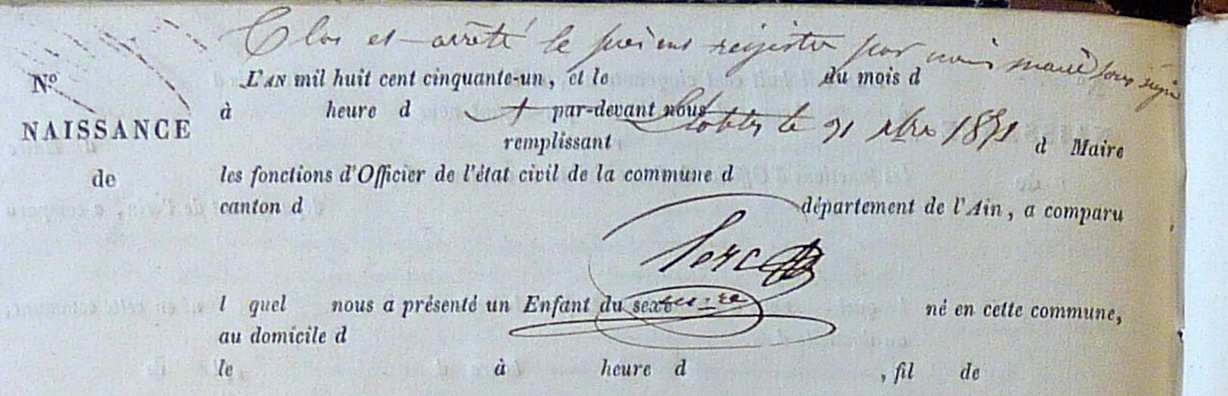 Clos et arrêté le présent registre par nous maire sous signé
N.º L'AN mil huit cent cinquante-un, et le du mois d
à heure d par-devant nous
le 31 xbre 1851
NAISSANCE remplissant d Maire
de les fonctions d'Officier de l'état civil de la commune d
canton d département de l'Ain, a comparu
l quel nous a présenté un Enfant du sexe né en cette commune,
au domicile d
le à heure d , fil de